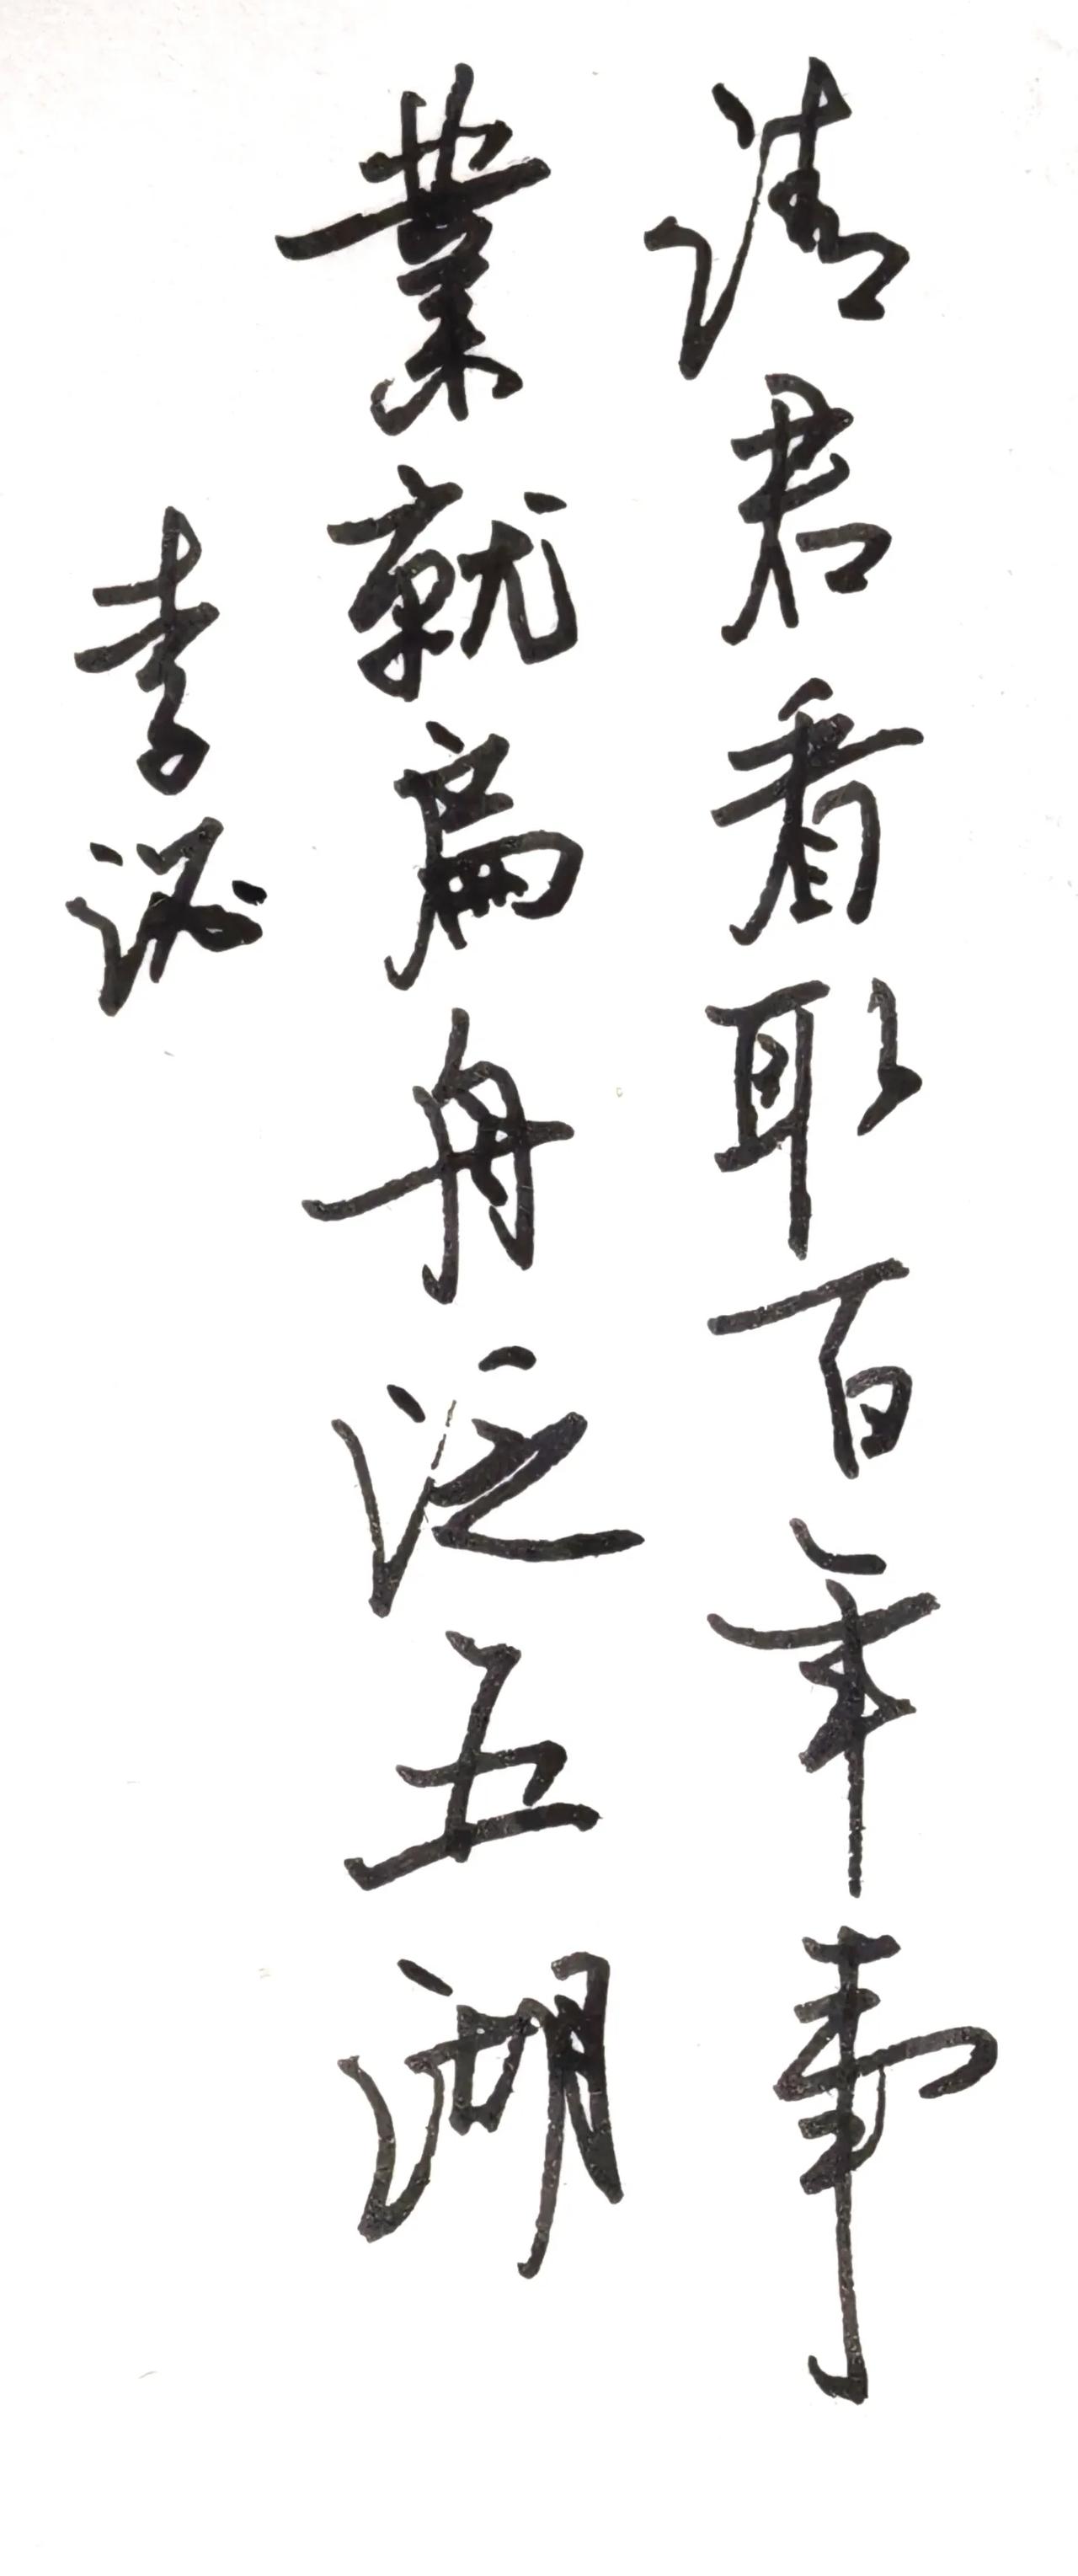 請君看取百年事
業就扁舟泛五湖
李泌